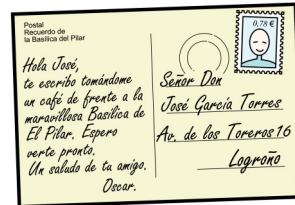 Postal
Recuerdo de
la Basílica del Pilar
Hola José,
te escribo tomándome
un café de frente a la
maravillosa Basílica de
El Pilar. Espero
verte pronto.
Un saludo de tu amigo.
Oscar.
0,78 €
Señor Don
José García Torres
Av. de los Toreros 16
Logroño